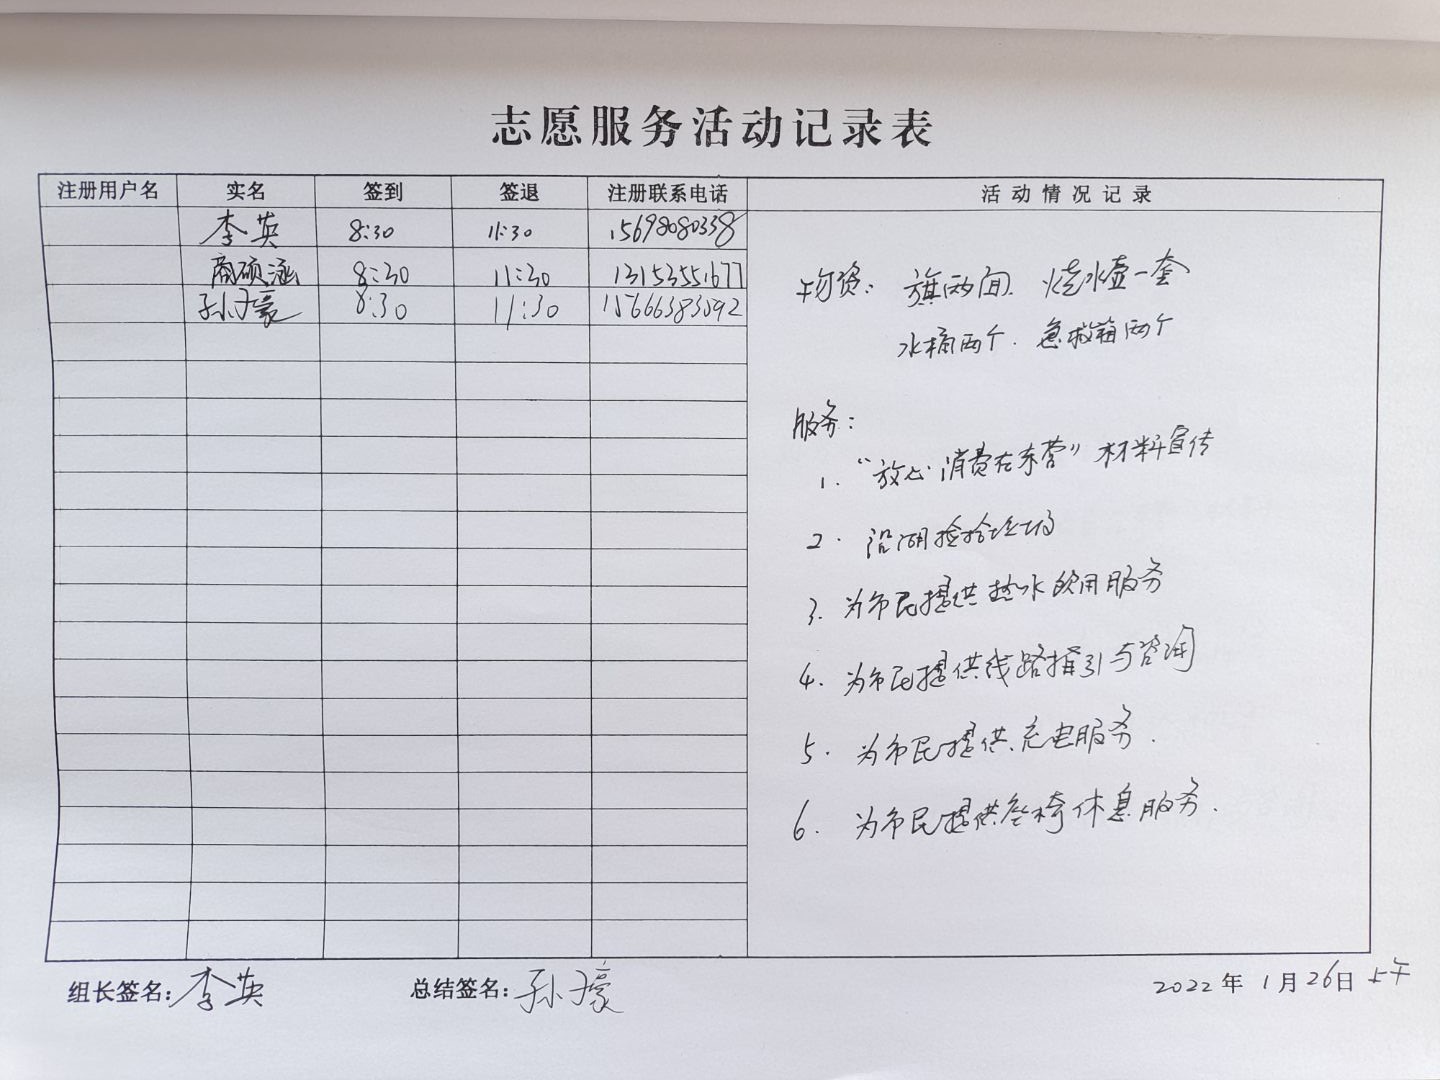 志愿服务活动记录表
注册用户名 实名 签到 签退 注册联系电话 活动情况记录
李英 8:30 11:30 15698080338
商硕涵 8:30 11:30 13153551677
孙子豪 8:30 11:30 15666383092
物资: 旗两面. 烧水壶一套
水桶两个. 急救箱两个
服务:
1. “放心消费在东营”材料宣传
2. 沿湖捡拾垃圾
3. 为市民提供热水饮用服务
4. 为市民提供线路指引与咨询
5. 为市民提供充电服务.
6. 为市民提供座椅休息服务.
组长签名:李英 总结签名:孙子豪 2022年1月26日上午